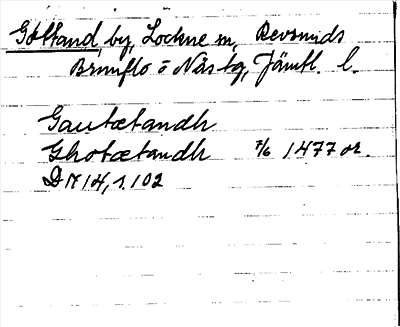 Gåttand by, Lockne sn, Revsunds
Brunflo o Näs tg, Jämtl. l.
Gautætandh
Ghotætandh 7/6 1477 or.
DN 14, s. 102